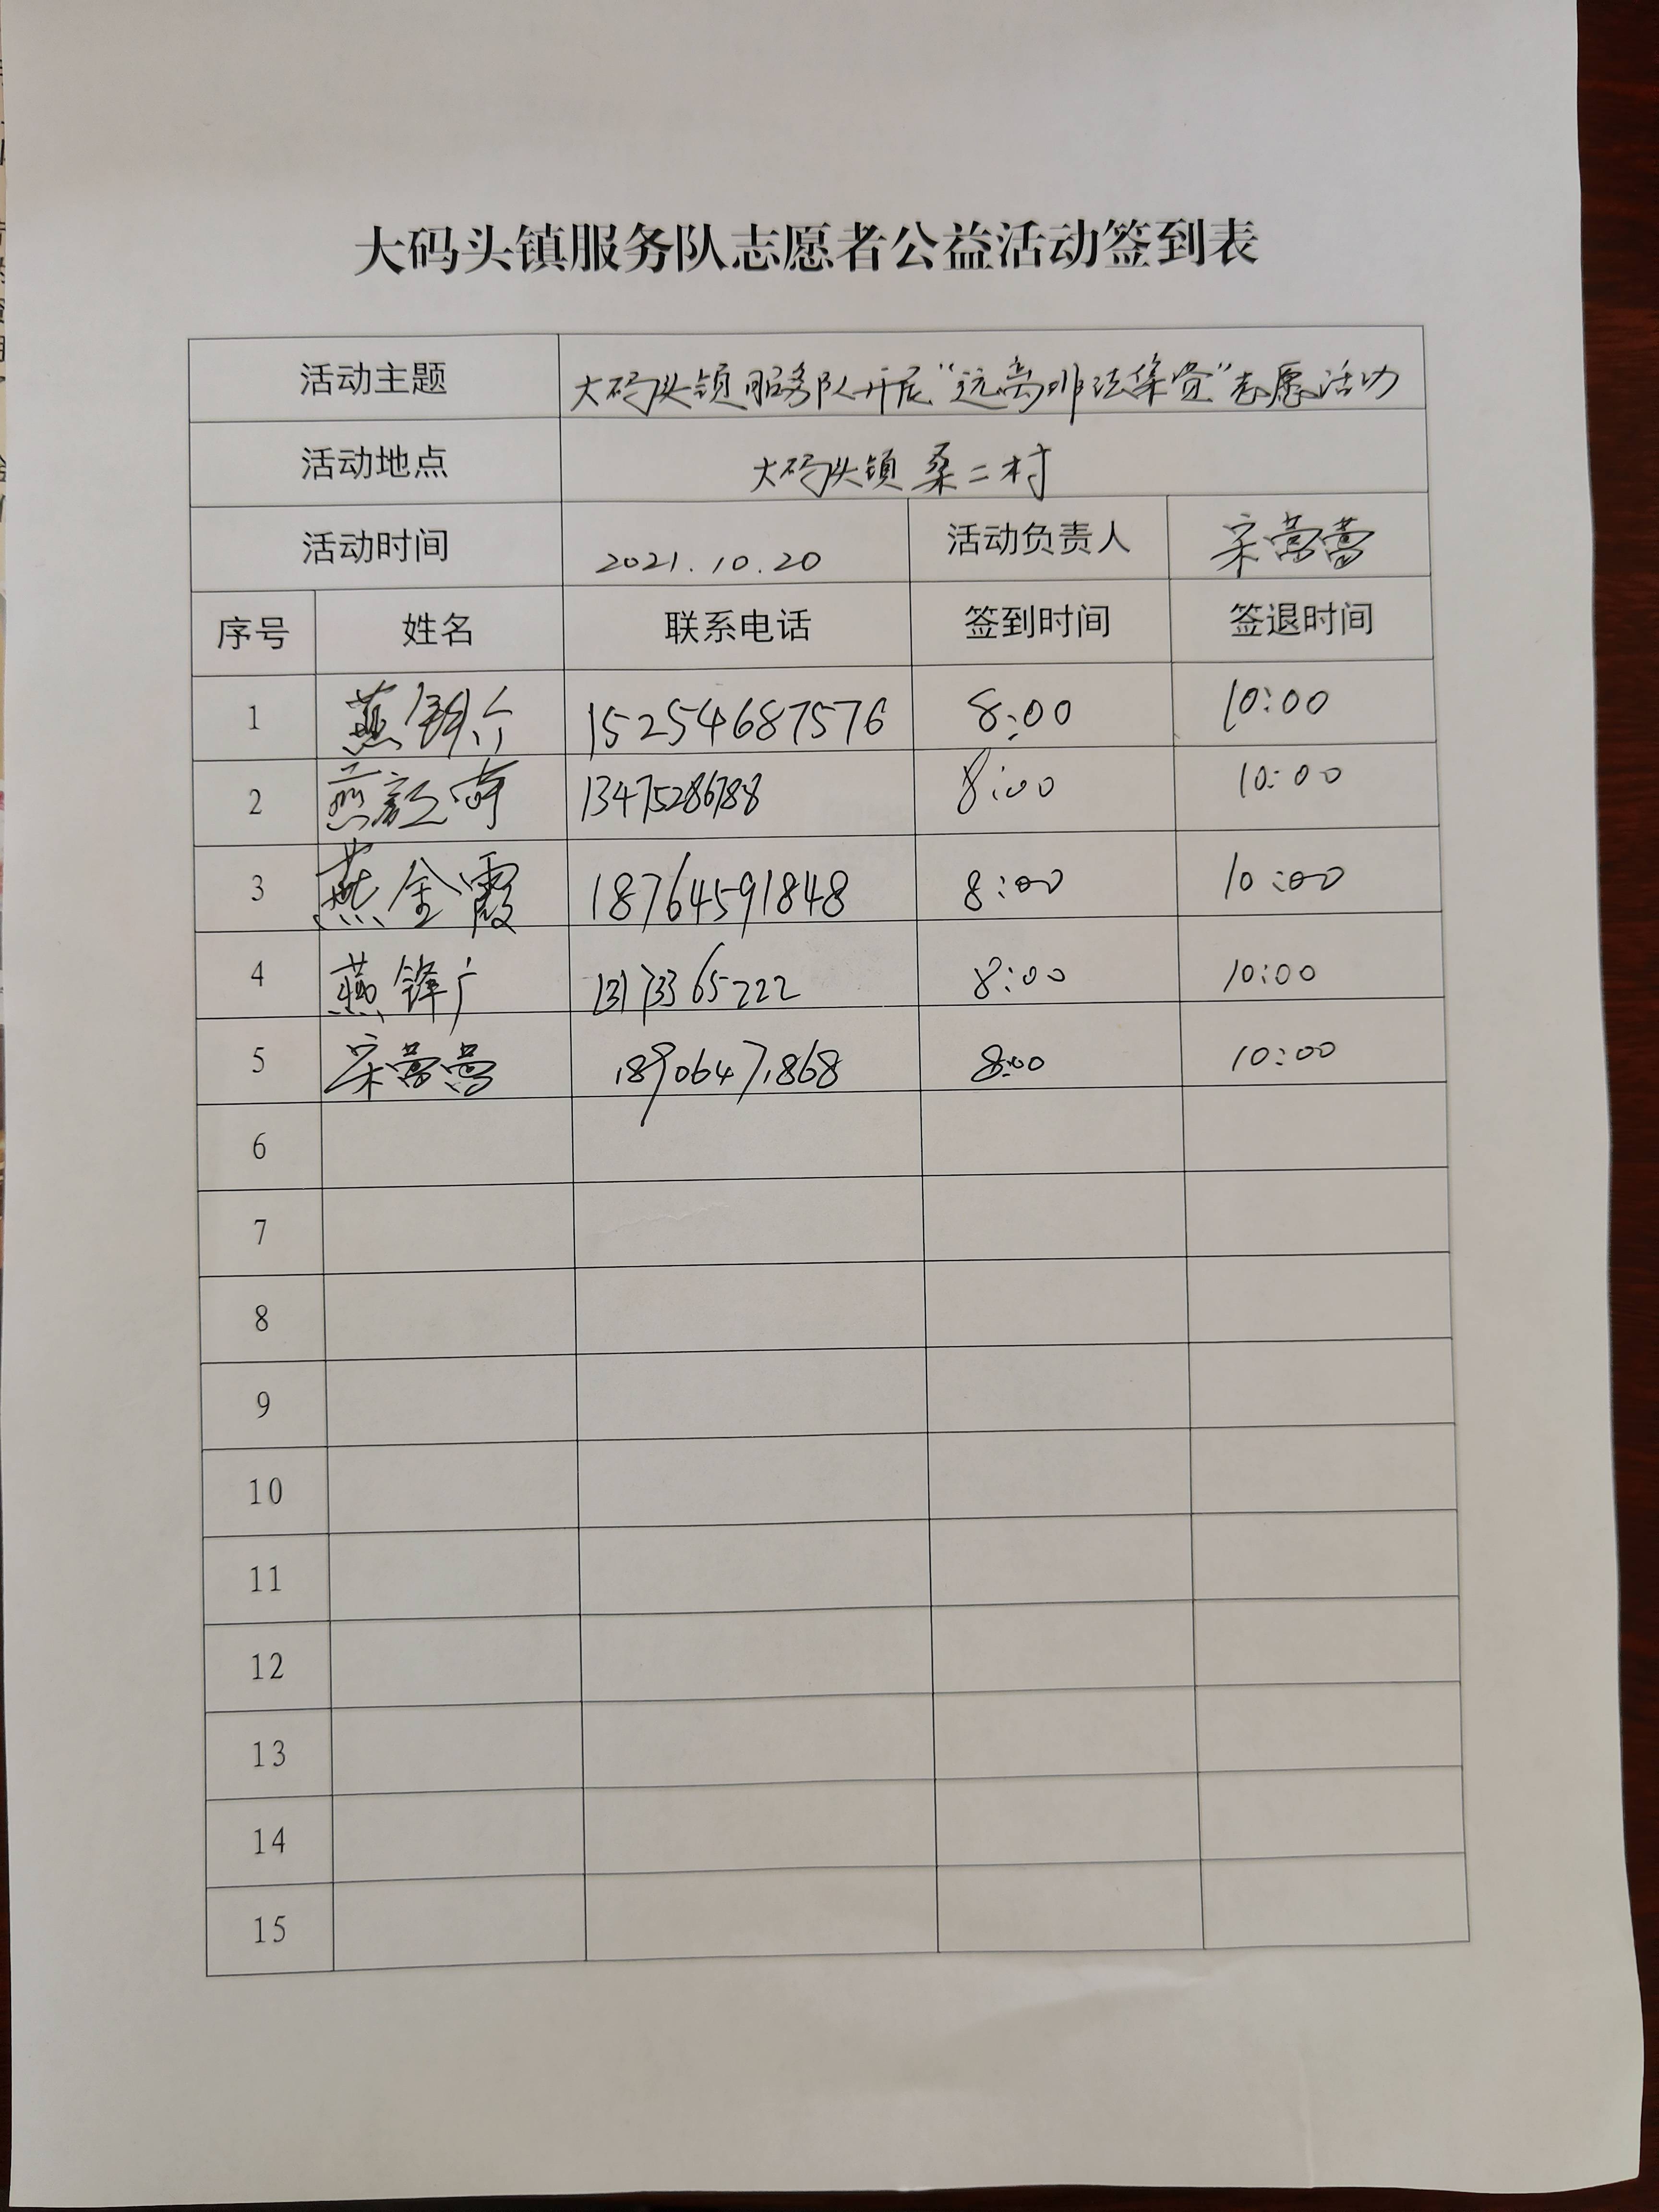 大码头镇服务队志愿者公益活动签到表
活动主题 大码头镇服务队开展“远离非法集资”志愿活动
活动地点 大码头镇桑二村
活动时间 2021.10.20 活动负责人 宋莺莺
序号 姓名 联系电话 签到时间 签退时间
1 燕 15254687576 8:00 10:00
2 燕 13475286788 8:00 10:00
3 燕金霞 18764591848 8:00 10:00
4 燕锋广 13173365222 8:00 10:00
5 宋莺莺 18906471868 8:00 10:00
6
7
8
9
10
11
12
13
14
15